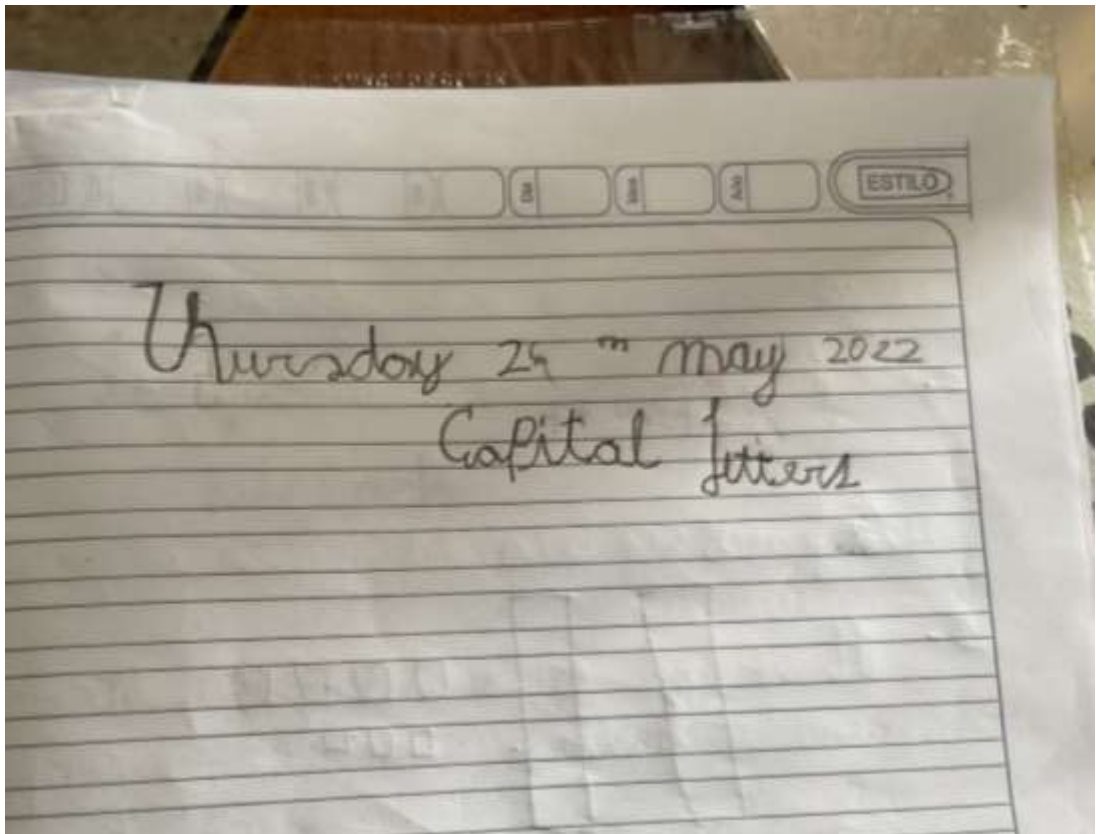 Día Mes Año ESTILO
Thursday 24 th may 2022
Capital letters